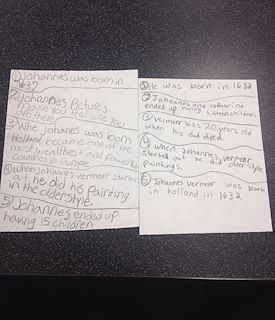 ① Johannes was born in
1632
② Johannes Pictures
make you feel like you
are there
3 Whe Johanes was born
Holland became one of the
most wealthest and powerful
countries in Europe
④ when Johannes vermeer started
out he did his painting
in the older style.
5) Johannes ended up
having 15 children
① He was born in 1632
② Johannes and catharina
ended up having fifteen children.
③ vermeer was 20 years old
when his dad died.
④ when Johannes vermeer
started out he did older style
paintings.
⑤ Johannes vermeer was born
in holland in 1632